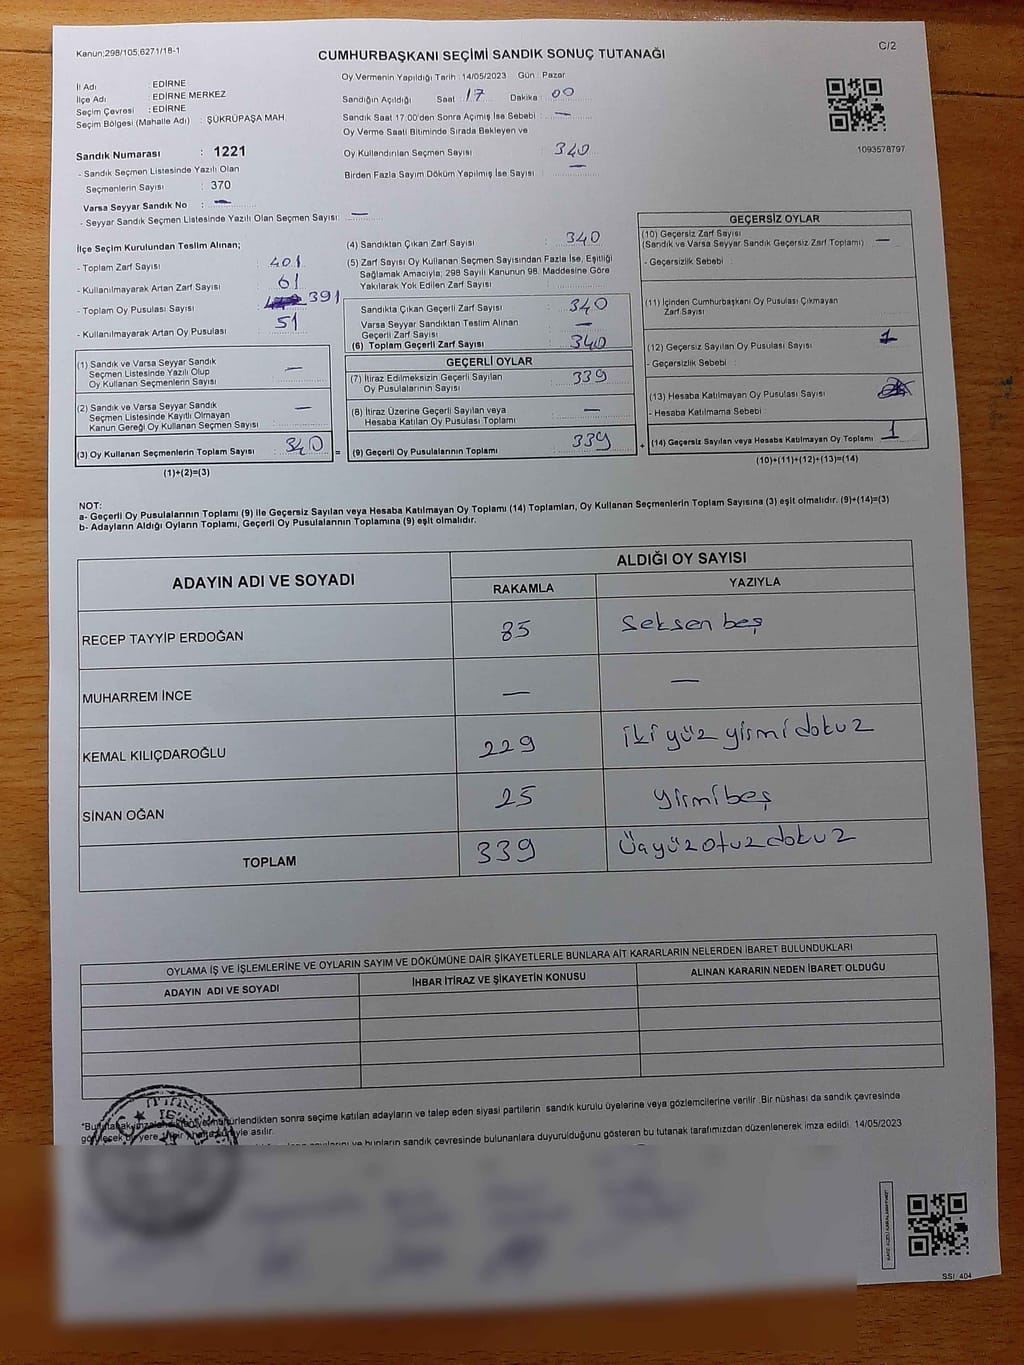 Kanun:298/105,6271/18-1
CUMHURBAŞKANI SEÇİMİ SANDIK SONUÇ TUTANAĞI
C/2
İl Adı : EDİRNE
İlçe Adı : EDİRNE MERKEZ
Seçim Çevresi : EDİRNE
Seçim Bölgesi (Mahalle Adı) : ŞÜKRÜPAŞA MAH
Sandık Numarası : 1221
- Sandık Seçmen Listesinde Yazılı Olan
Seçmenlerin Sayısı : 370
Varsa Seyyar Sandık No : —
- Seyyar Sandık Seçmen Listesinde Yazılı Olan Seçmen Sayısı: —
Oy Vermenin Yapıldığı Tarih : 14/05/2023 Gün : Pazar
Sandığın Açıldığı Saat : 17 Dakika : 00
Sandık Saat 17:00'den Sonra Açımış İse Sebebi : —
Oy Verme Saati Bitiminde Sırada Bekleyen ve
Oy Kullandırılan Seçmen Sayısı : 340
Birden Fazla Sayım Döküm Yapılmış İse Sayısı : —
1093578797
İlçe Seçim Kurulundan Teslim Alınan;
- Toplam Zarf Sayısı : 401
- Kullanılmayarak Artan Zarf Sayısı : 61
- Toplam Oy Pusulası Sayısı : 391
- Kullanılmayarak Artan Oy Pusulası : 51
(1) Sandık ve Varsa Seyyar Sandık
Seçmen Listesinde Yazılı Olup
Oy Kullanan Seçmenlerin Sayısı : —
(2) Sandık ve Varsa Seyyar Sandık
Seçmen Listesinde Kayıtlı Olmayan
Kanun Gereği Oy Kullanan Seçmen Sayısı : —
(3) Oy Kullanan Seçmenlerin Toplam Sayısı : 340 =
(1)+(2)=(3)
(4) Sandıktan Çıkan Zarf Sayısı : 340
(5) Zarf Sayısı Oy Kullanan Seçmen Sayısından Fazla İse, Eşitliği
Sağlamak Amacıyla; 298 Sayılı Kanunun 98. Maddesine Göre
Yakılarak Yok Edilen Zarf Sayısı :
Sandıkta Çıkan Geçerli Zarf Sayısı : 340
Varsa Seyyar Sandıktan Teslim Alınan
Geçerli Zarf Sayısı : —
(6) Toplam Geçerli Zarf Sayısı : 340
GEÇERLİ OYLAR
(7) İtiraz Edilmeksizin Geçerli Sayılan
Oy Pusulalarının Sayısı : 339
(8) İtiraz Üzerine Geçerli Sayılan veya
Hesaba Katılan Oy Pusulası Toplamı : —
(9) Geçerli Oy Pusulalarının Toplamı : 339 +
GEÇERSİZ OYLAR
(10) Geçersiz Zarf Sayısı
(Sandık ve Varsa Seyyar Sandık Geçersiz Zarf Toplamı) —
- Geçersizlik Sebebi :
(11) İçinden Cumhurbaşkanı Oy Pusulası Çıkmayan
Zarf Sayısı
(12) Geçersiz Sayılan Oy Pusulası Sayısı : 1
- Geçersizlik Sebebi :
(13) Hesaba Katılmayan Oy Pusulası Sayısı :
- Hesaba Katılmama Sebebi :
(14) Geçersiz Sayılan veya Hesaba Katılmayan Oy Toplamı : 1
(10)+(11)+(12)+(13)=(14)
NOT:
a- Geçerli Oy Pusulalarının Toplamı (9) ile Geçersiz Sayılan veya Hesaba Katılmayan Oy Toplamı (14) Toplamları, Oy Kullanan Seçmenlerin Toplam Sayısına (3) eşit olmalıdır. (9)+(14)=(3)
b- Adayların Aldığı Oyların Toplamı, Geçerli Oy Pusulalarının Toplamına (9) eşit olmalıdır.
ADAYIN ADI VE SOYADI
ALDIĞI OY SAYISI
RAKAMLA
YAZIYLA
RECEP TAYYİP ERDOĞAN 85 Seksen beş
MUHARREM İNCE — —
KEMAL KILIÇDAROĞLU 229 iki yüz yirmi dokuz
SİNAN OĞAN 25 yirmi beş
TOPLAM 339 Üçyüz otuz dokuz
OYLAMA İŞ VE İŞLEMLERİNE VE OYLARIN SAYIM VE DÖKÜMÜNE DAİR ŞİKAYETLERLE BUNLARA AİT KARARLARIN NELERDEN İBARET BULUNDUKLARI
ADAYIN ADI VE SOYADI
İHBAR İTİRAZ VE ŞİKAYETİN KONUSU
ALINAN KARARIN NEDEN İBARET OLDUĞU
sonra seçime katılan adayların ve talep eden siyasi partilerin sandık kurulu üyelerine veya gözlemcilerine verilir .Bir nüshası da sandık çevresinde
asılır.
bunların sandık çevresinde bulunanlara duyurulduğunu gösteren bu tutanak tarafımızdan düzenlenerek imza edildi. 14/05/2023
SSİ: 404